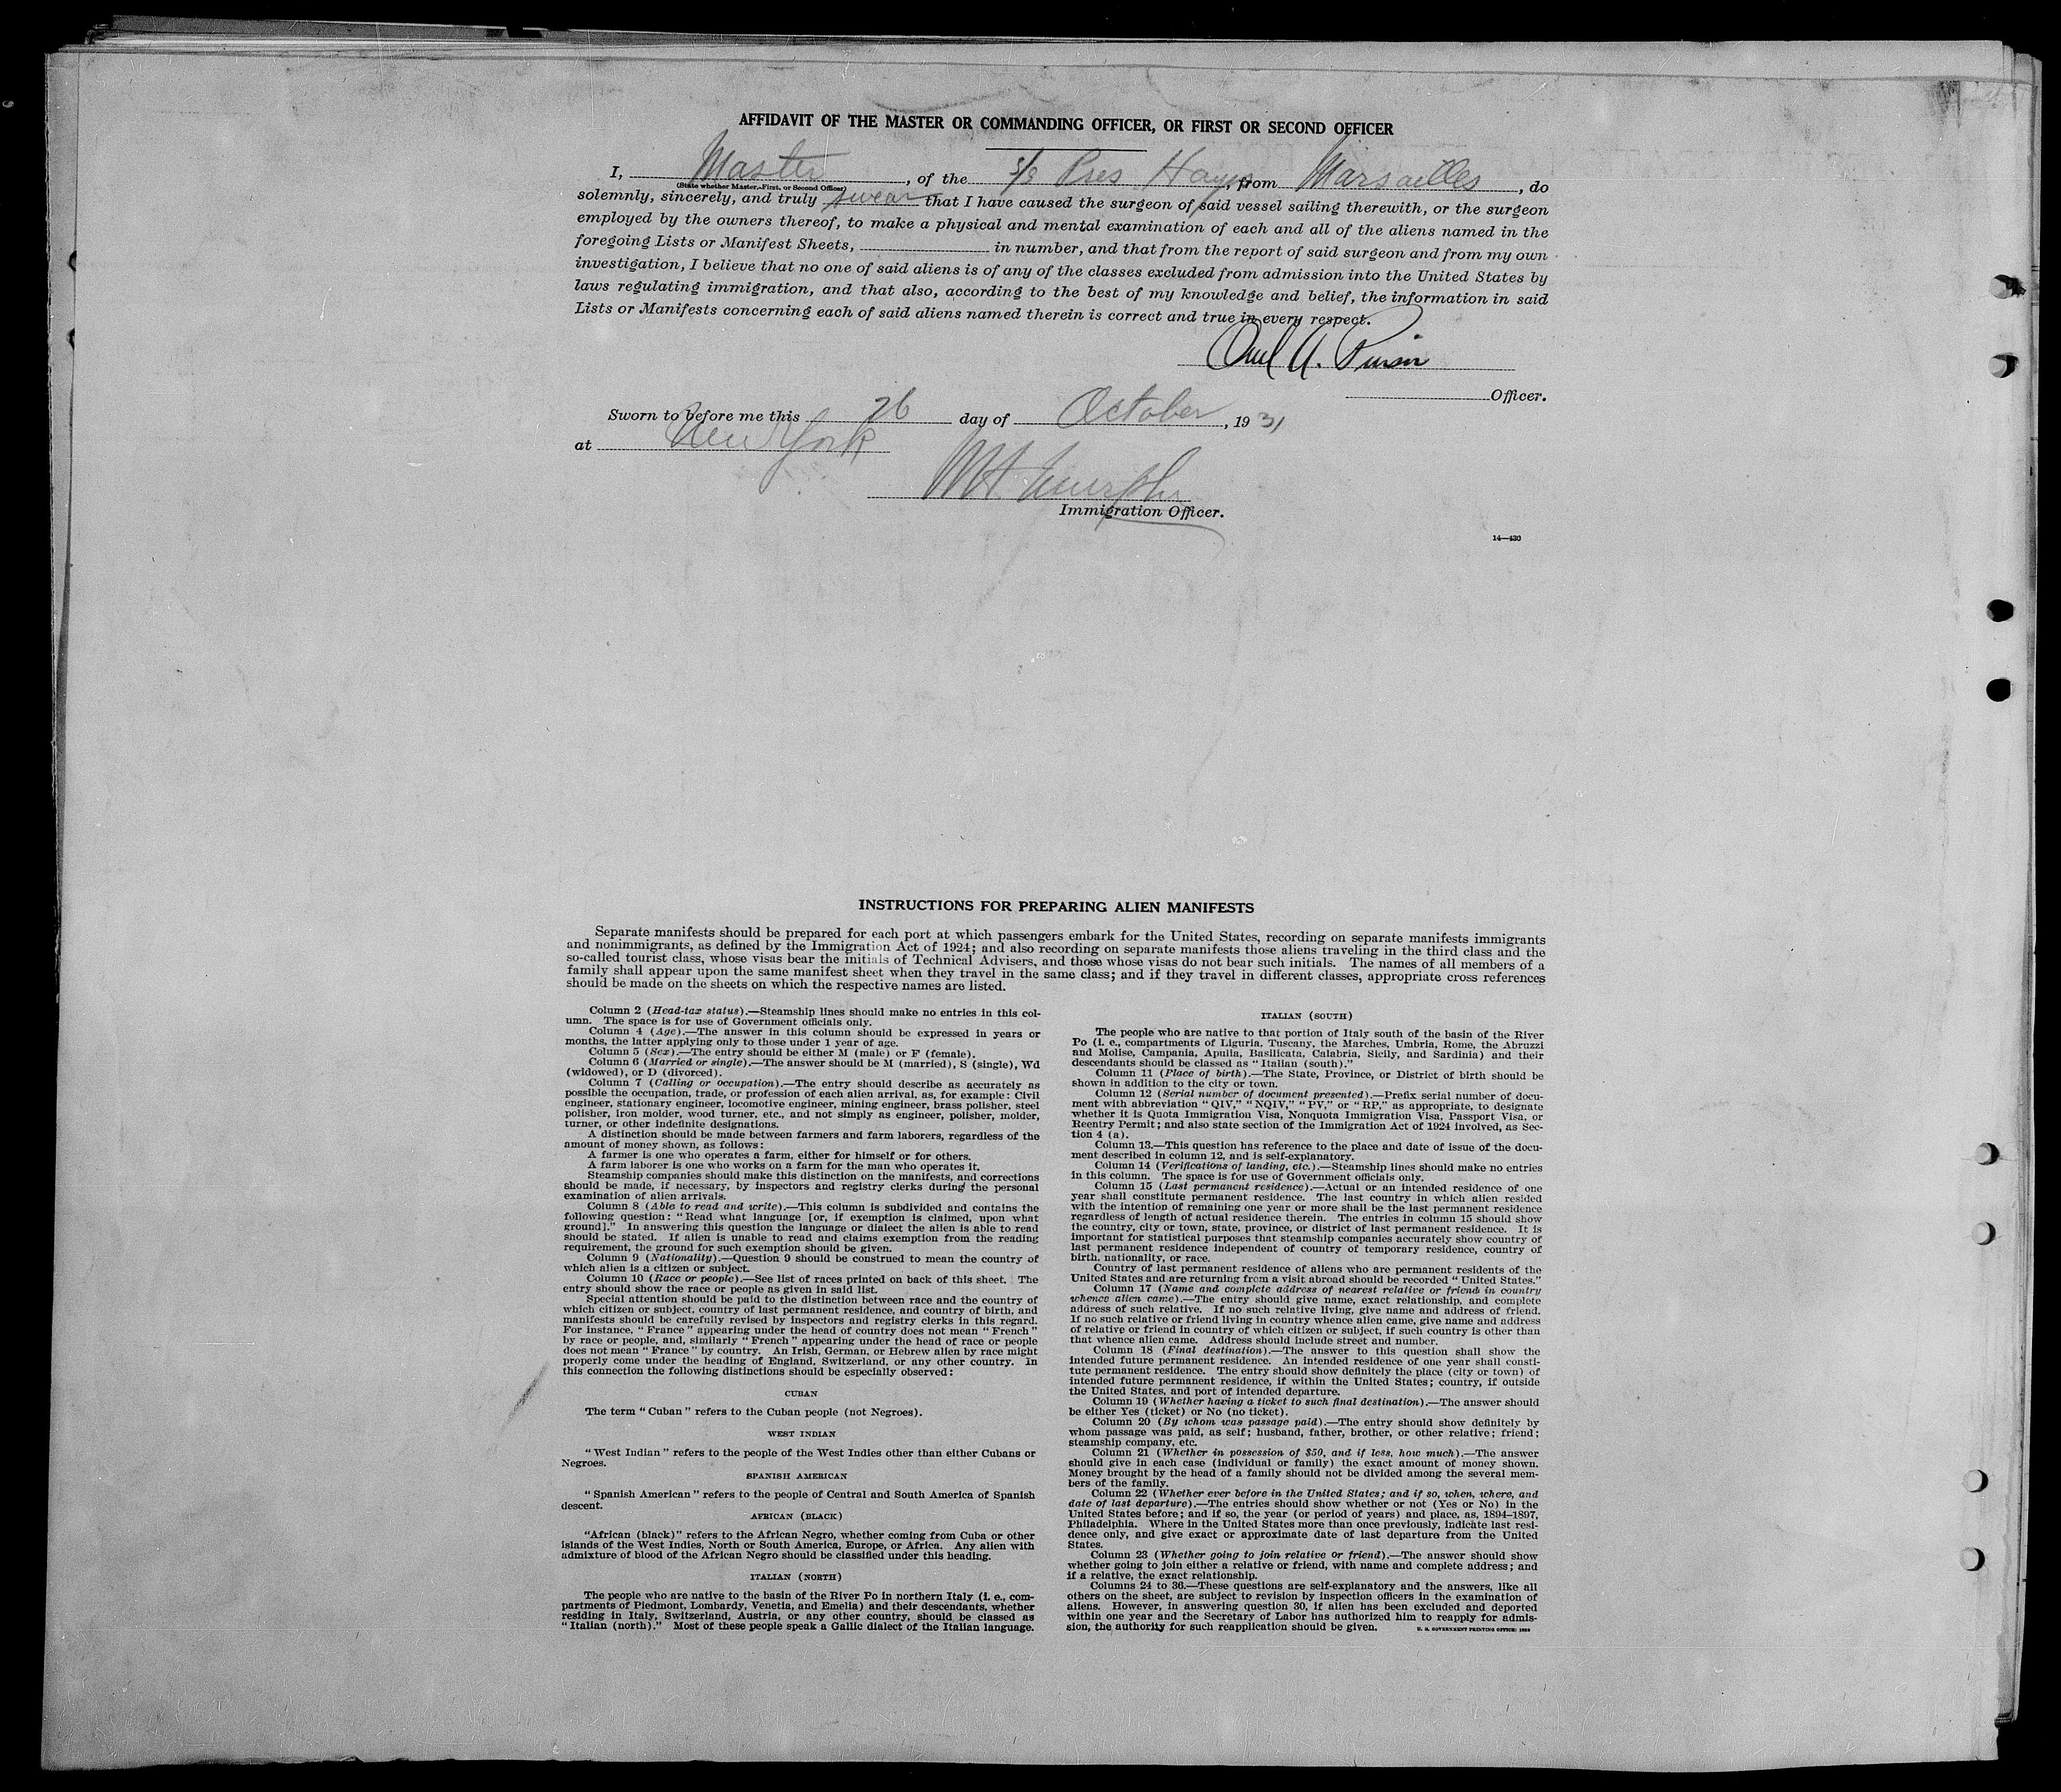 AFFIDAVIT OF THE MASTER OR COMMANDING OFFICER, OR FIRST OR SECOND OFFICER
I, Master, of the S/S Pres Hayes, from Marsailles, do
(State whether Master, First, or Second Officer)
solemnly, sincerely, and truly swear that I have caused the surgeon of said vessel sailing therewith, or the surgeon
employed by the owners thereof, to make a physical and mental examination of each and all of the aliens named in the
foregoing Lists or Manifest Sheets, in number, and that from the report of said surgeon and from my own
investigation, I believe that no one of said aliens is of any of the classes excluded from admission into the United States by
laws regulating immigration, and that also, according to the best of my knowledge and belief, the information in said
Lists or Manifests concerning each of said aliens named therein is correct and true in every respect.
A.
Officer.
Sworn to before me this 26 day of October, 1931
at New York
Murphy
Immigration Officer.
14—430
INSTRUCTIONS FOR PREPARING ALIEN MANIFESTS
Separate manifests should be prepared for each port at which passengers embark for the United States, recording on separate manifests immigrants
and nonimmigrants, as defined by the Immigration Act of 1924; and also recording on separate manifests those aliens traveling in the third class and the
so-called tourist class, whose visas bear the initials of Technical Advisers, and those whose visas do not bear such initials. The names of all members of a
family shall appear upon the same manifest sheet when they travel in the same class; and if they travel in different classes, appropriate cross references
should be made on the sheets on which the respective names are listed.
Column 2 (Head-tax status).—Steamship lines should make no entries in this col-
umn. The space is for use of Government officials only.
Column 4 (Age).—The answer in this column should be expressed in years or
months, the latter applying only to those under 1 year of age.
Column 5 (Sex).—The entry should be either M (male) or F (female).
Column 6 (Married or single).—The answer should be M (married), S (single), Wd
(widowed), or D (divorced).
Column 7 (Calling or occupation).—The entry should describe as accurately as
possible the occupation, trade, or profession of each alien arrival, as, for example: Civil
engineer, stationary engineer, locomotive engineer, mining engineer, brass polisher, steel
polisher, iron molder, wood turner, etc., and not simply as engineer, polisher, molder,
turner, or other indefinite designations.
A distinction should be made between farmers and farm laborers, regardless of the
amount of money shown, as follows:
A farmer is one who operates a farm, either for himself or for others.
A farm laborer is one who works on a farm for the man who operates it.
Steamship companies should make this distinction on the manifests, and corrections
should be made, if necessary, by inspectors and registry clerks during the personal
examination of alien arrivals.
Column 8 (Able to read and write).—This column is subdivided and contains the
following question: "Read what language [or, if exemption is claimed, upon what
ground]." In answering this question the language or dialect the alien is able to read
should be stated. If alien is unable to read and claims exemption from the reading
requirement, the ground for such exemption should be given.
Column 9 (Nationality).—Question 9 should be construed to mean the country of
which alien is a citizen or subject.
Column 10 (Race or people).—See list of races printed on back of this sheet. The
entry should show the race or people as given in said list.
Special attention should be paid to the distinction between race and the country of
which citizen or subject, country of last permanent residence, and country of birth, and
manifests should be carefully revised by inspectors and registry clerks in this regard.
For instance, "France" appearing under the head of country does not mean "French"
by race or people, and, similarly "French" appearing under the head of race or people
does not mean "France" by country. An Irish, German, or Hebrew alien by race might
properly come under the heading of England, Switzerland, or any other country. In
this connection the following distinctions should be especially observed:
CUBAN
The term "Cuban" refers to the Cuban people (not Negroes).
WEST INDIAN
"West Indian" refers to the people of the West Indies other than either Cubans or
Negroes.
SPANISH AMERICAN
"Spanish American" refers to the people of Central and South America of Spanish
descent.
AFRICAN (BLACK)
"African (black)" refers to the African Negro, whether coming from Cuba or other
islands of the West Indies, North or South America, Europe, or Africa. Any alien with
admixture of blood of the African Negro should be classified under this heading.
ITALIAN (NORTH)
The people who are native to the basin of the River Po in northern Italy (i. e., com-
partments of Piedmont, Lombardy, Venetia, and Emelia) and their descendants, whether
residing in Italy, Switzerland, Austria, or any other country, should be classed as
"Italian (north)." Most of these people speak a Gallic dialect of the Italian language.
ITALIAN (SOUTH)
The people who are native to that portion of Italy south of the basin of the River
Po (i. e., compartments of Liguria, Tuscany, the Marches, Umbria, Rome, the Abruzzi
and Molise, Campania, Apulia, Basilicata, Calabria, Sicily, and Sardinia) and their
descendants should be classed as "Italian (south)."
Column 11 (Place of birth).—The State, Province, or District of birth should be
shown in addition to the city or town.
Column 12 (Serial number of document presented).—Prefix serial number of docu-
ment with abbreviation "QIV," "NQIV," "PV," or "RP," as appropriate, to designate
whether it is Quota Immigration Visa, Nonquota Immigration Visa, Passport Visa, or
Reentry Permit; and also state section of the Immigration Act of 1924 involved, as Sec-
tion 4 (a).
Column 13.—This question has reference to the place and date of issue of the docu-
ment described in column 12, and is self-explanatory.
Column 14 (Verifications of landing, etc.).—Steamship lines should make no entries
in this column. The space is for use of Government officials only.
Column 15 (Last permanent residence).—Actual or an intended residence of one
year shall constitute permanent residence. The last country in which alien resided
with the intention of remaining one year or more shall be the last permanent residence
regardless of length of actual residence therein. The entries in column 15 should show
the country, city or town, state, province, or district of last permanent residence. It is
important for statistical purposes that steamship companies accurately show country of
last permanent residence independent of country of temporary residence, country of
birth, nationality, or race.
Country of last permanent residence of aliens who are permanent residents of the
United States and are returning from a visit abroad should be recorded "United States."
Column 17 (Name and complete address of nearest relative or friend in country
whence alien came).—The entry should give name, exact relationship, and complete
address of such relative. If no such relative living, give name and address of friend.
If no such relative or friend living in country whence alien came, give name and address
of relative or friend in country of which citizen or subject, if such country is other than
that whence alien came. Address should include street and number.
Column 18 (Final destination).—The answer to this question shall show the
intended future permanent residence. An intended residence of one year shall consti-
tute permanent residence. The entry should show definitely the place (city or town) of
intended future permanent residence, if within the United States; country, if outside
the United States, and port of intended departure.
Column 19 (Whether having a ticket to such final destination).—The answer should
be either Yes (ticket) or No (no ticket).
Column 20 (By whom was passage paid).—The entry should show definitely by
whom passage was paid, as self; husband, father, brother, or other relative; friend;
steamship company, etc.
Column 21 (Whether in possession of $50, and if less, how much).—The answer
should give in each case (individual or family) the exact amount of money shown.
Money brought by the head of a family should not be divided among the several mem-
bers of the family.
Column 22 (Whether ever before in the United States; and if so, when, where, and
date of last departure).—The entries should show whether or not (Yes or No) in the
United States before; and if so, the year (or period of years) and place, as, 1894–1897,
Philadelphia. Where in the United States more than once previously, indicate last resi-
dence only, and give exact or approximate date of last departure from the United
States.
Column 23 (Whether going to join relative or friend).—The answer should show
whether going to join either a relative or friend, with name and complete address; and
if a relative, the exact relationship.
Columns 24 to 36.—These questions are self-explanatory and the answers, like all
others on the sheet, are subject to revision by inspection officers in the examination of
aliens. However, in answering question 30, if alien has been excluded and deported
within one year and the Secretary of Labor has authorized him to reapply for admis-
sion, the authority for such reapplication should be given.
U. S. GOVERNMENT PRINTING OFFICE: